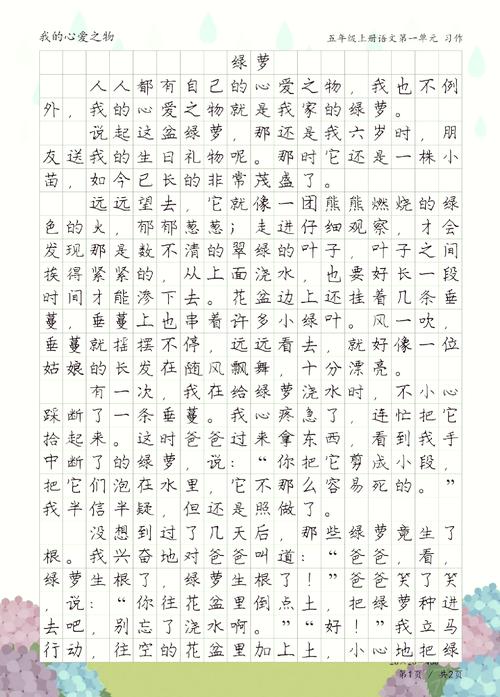 我的心爱之物
五年级上册语文第一单元 习作
绿萝
人人都有自己的心爱之物，我也不例
外，我的心爱之物就是我家的绿萝。
说起这盆绿萝，那还是我六岁时，朋
友送我的生日礼物呢。那时它还是一株小
苗，如今已长的非常茂盛了。
远远望去，它就像一团熊熊燃烧的绿
色的火，郁郁葱葱；走进仔细观察，才会
发现那是数不清的翠绿的叶子，叶子之间
挨得紧紧的，从上面浇水，也要好长一段
时间才能渗下去。花盆边上还挂着几条垂
蔓，垂蔓上也串着许多小绿叶。风一吹，
垂蔓就摇摆不停，远远看去，就好像一位
姑娘的长发在随风飘舞，十分漂亮。
有一次，我在给绿萝浇水时，不小心
踩断了一条垂蔓。我心疼急了，连忙把它
拾起来。这时爸爸过来拿东西，看到我手
中断了的绿萝，说：“你把它剪成小段，
把它们泡在水里，它不那么容易死的。”
我半信半疑，但还是照做了。
没想到过了几天后，那些绿萝竟生了
根。我兴奋地对爸爸叫道：“爸爸，看，
绿萝生根了 绿萝生根了！”爸爸笑了笑
，说：“你往花盆里倒点土，把绿萝种进
去吧，别忘了浇水啊。”“好！”我立马
行动，往空的花盆里加上土，小心地把绿
20×20=400
第1页 / 共2页